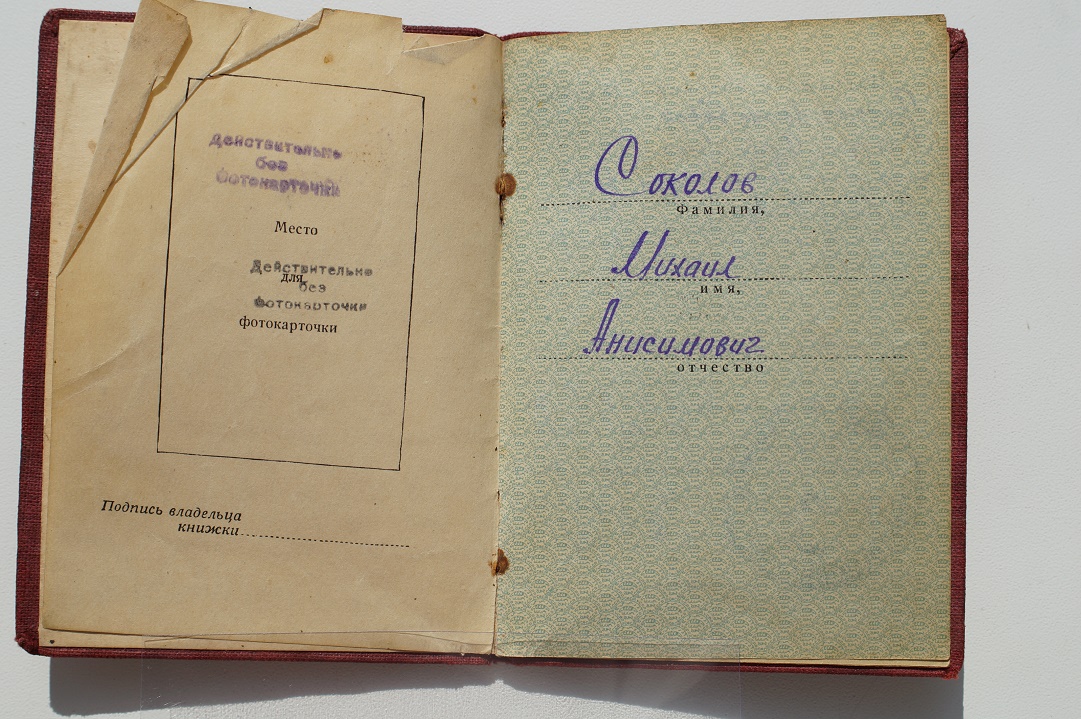 Действительно
без
фотокарточки
Место
Действительно
для
без
фотокарточки
фотокарточки
Подпись владельца
книжки
Соколов
Фамилия,
Михаил
имя,
Анисимович
отчество